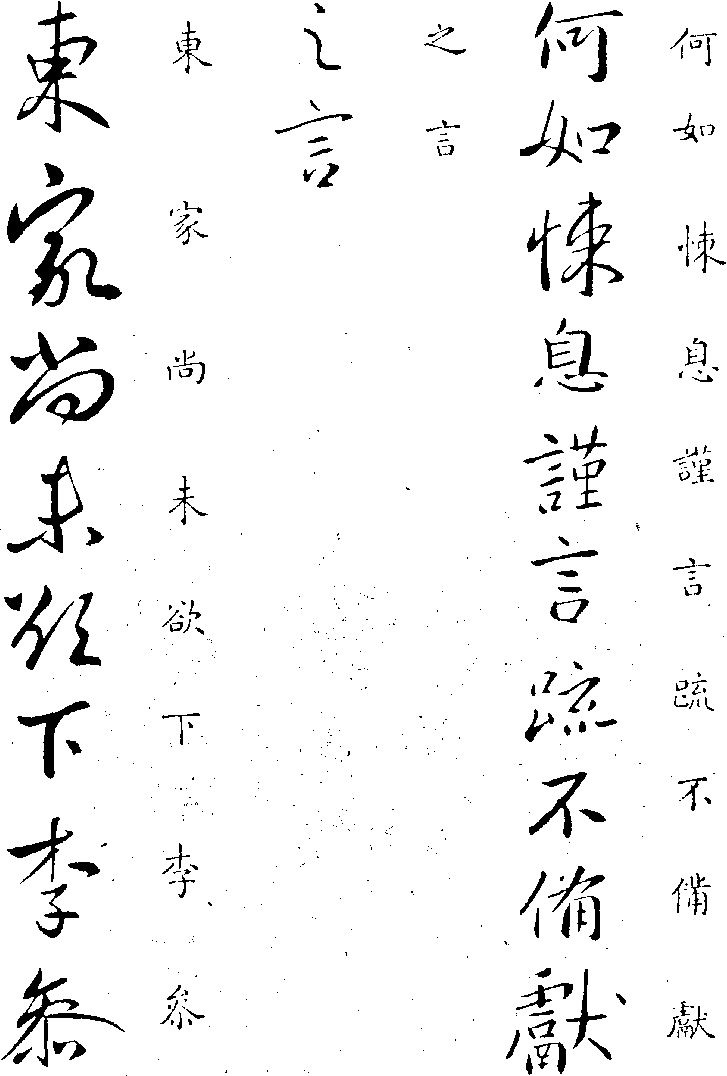 何如悚息謹言䟽不備獻
何如悚息謹言䟽不備獻
之言
之言
東家尚未欲下李参
東家尚未欲下李参